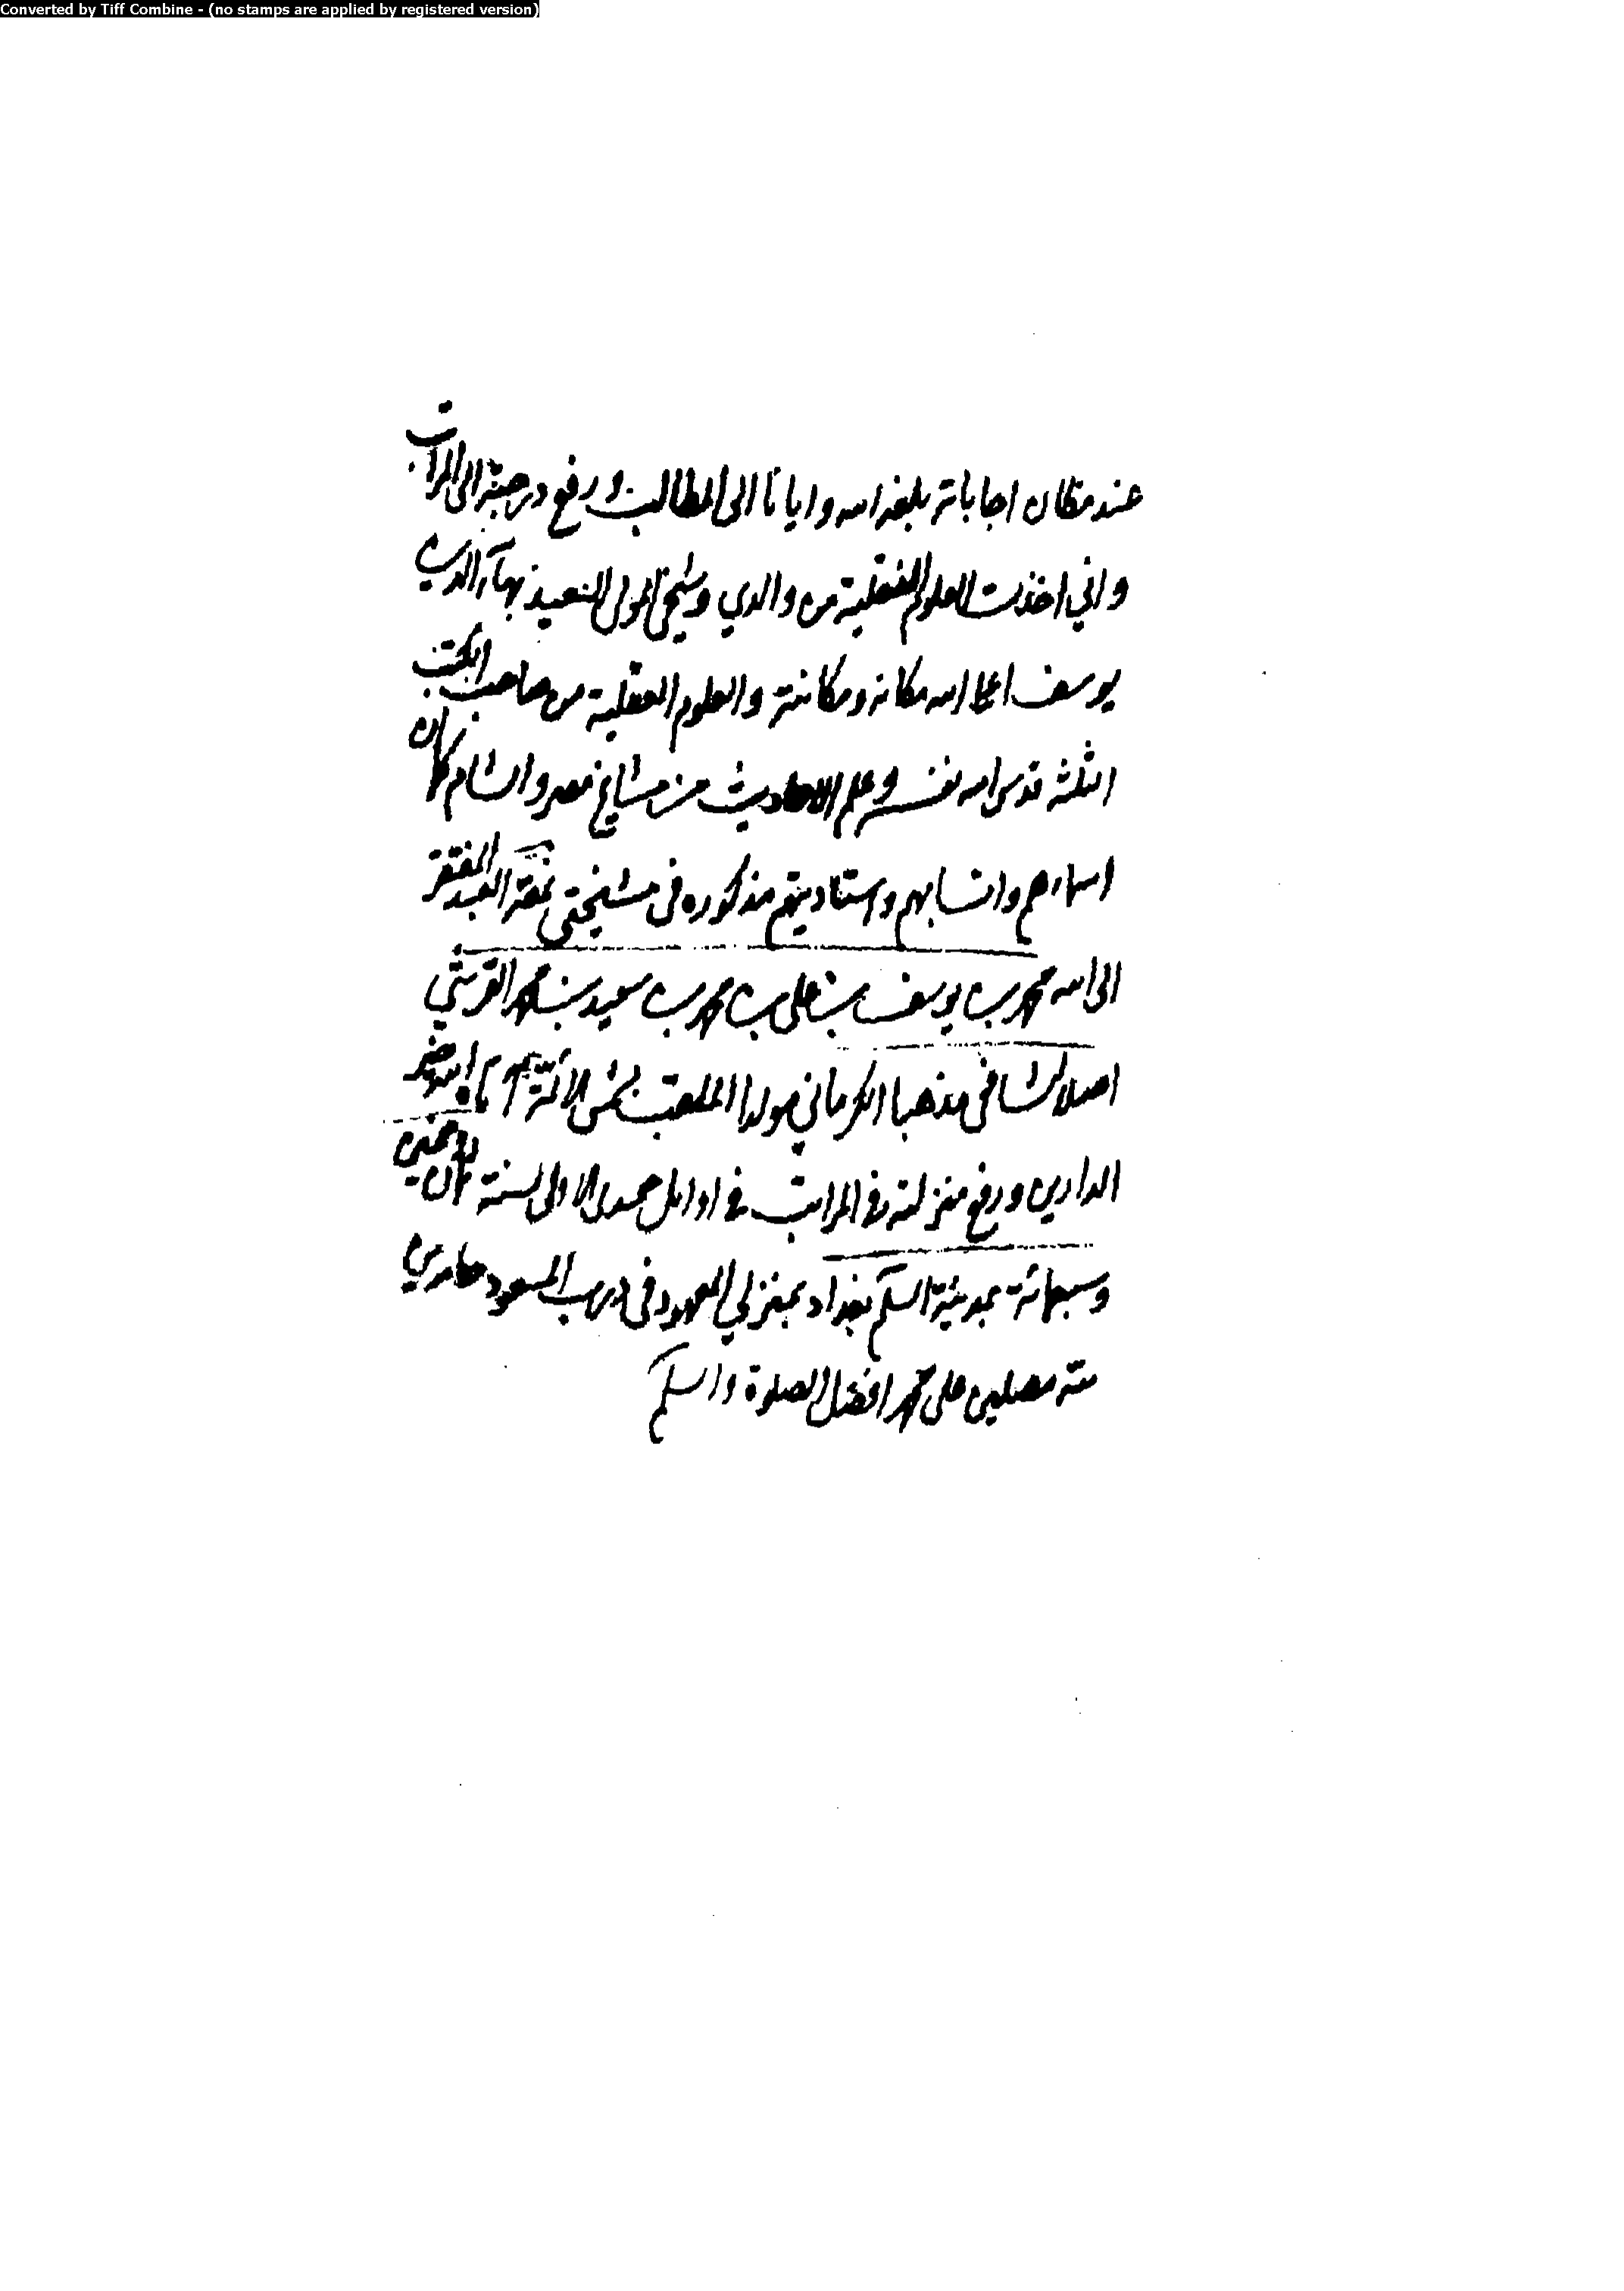 Converted by Tiff Combine - (no stamps are applied by registered version)
عند مكان اجاباته بلغه الله وايانا الى المطالب ورفع درجته الى المراتب
واني اخذت العلوم النقلية من والدي وشيخي المولى السعيد بهآء الدين
يوسف اعلا الله مكانه ومكانته والعلوم العقلية من صاحب الكتب
الثلثة قدس الله نفسه وعلم الاحاديث من مشايخ مصر والشام كان
اسماءهم وانسابهم واستاديتهم مذكوره في مشيختي نمقه العبد الفقير
الى الله محمد بن يوسف بن علي بن محمد بن سعيد بن محمد القرشي
اصلا الشافعي مذهبا الكرماني مولدا الملقب بشمس الائمة الله
الدارين ورفع منزلته في المراتب في اوايل جمدى الاولى لسنة
وسبعمائة بمدينة السلم بغداد بمنزلي المعهود في درب المسعود حامدي
لله مصلين على محمد افضل الصلوة والسلم